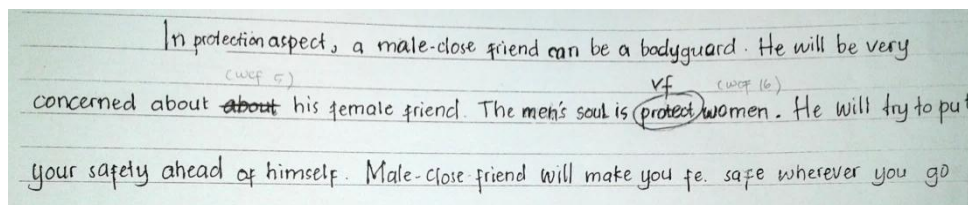 In protection aspect, a male-close friend can be a bodyguard. He will be very
(wcf 5) vf (wcf 16)
concerned about about his female friend. The men's soul is protect women. He will try to put
your safety ahead of himself. Male-close friend will make you fe. safe wherever you go